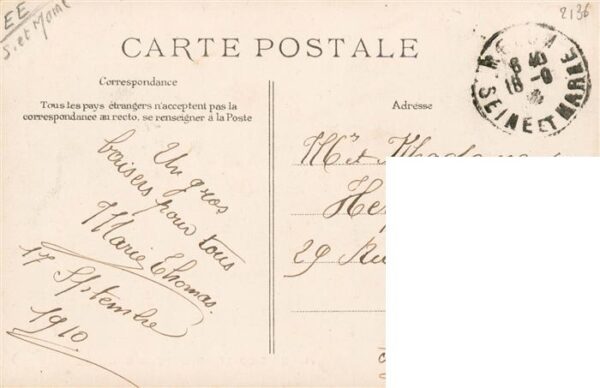 EE
S. et Marne
2136
CARTE POSTALE
Correspondance
Tous les pays étrangers n'acceptent pas la
correspondance au recto, se renseigner à la Poste
Un gros
baisers pour tous
Marie Thomas.
17 Septembre
1910
Adresse
Mr et Madame
29 Rue
8 40
18 -9
SEINE ET MARNE